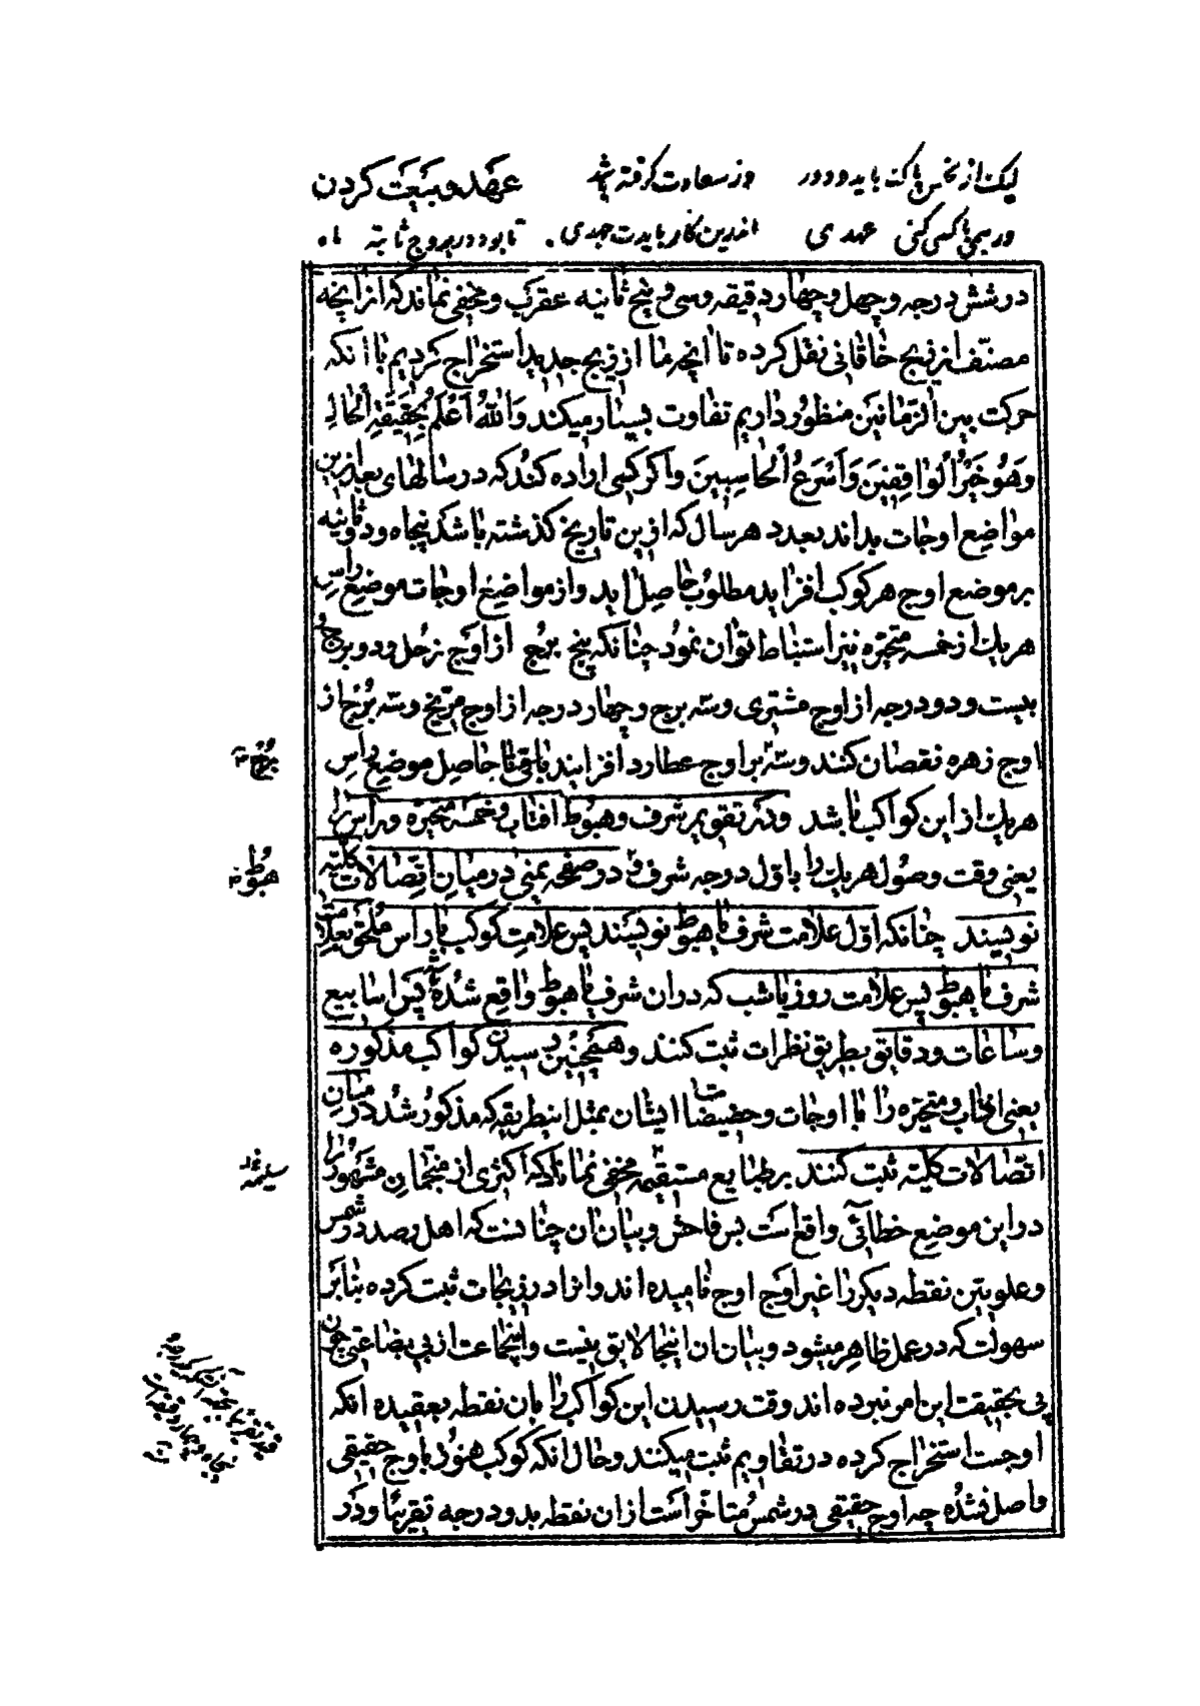 لیک از نحس پاک باید و دور    وز سعادت گرفته    عهد و بیعت کردن
ور همی با کسی کنی عهدی    اندرین کار بایدت جهدی    تا بود در بروج ثابته ماه
در شش درجه و چهل و چهار دقیقه و سی و پنج ثانیه عقرب و مخفی نماند که از آنچه
مصنّف از زیج خاقانی نقل کرده تا آنچه ما از زیج جدید استخراج کردیم با آنکه
حرکت بین الزمانین منظور داریم تفاوت بسیار میکند وَاللهُ اَعْلَمُ بِحَقیقَةِ الْحالِ
وَهُوَ خَیْرُ الْواقِفینَ وَاَسْرَعُ الْحاسِبینَ و اگر کسی اراده کند که در سالهای بعد ازین
مواضع اوجات بداند بعدد هر سال که ازین تاریخ گذشته باشد پنجاه و دو ثانیه
بر موضع اوج هر کوکب افزاید مطلوب حاصل اید و از مواضع اوجات موضع راس
هر یک از خمسه متحیّره نیز استنباط توان نمود چنانکه پنج برج از اوج زحل و دو برج و
بیست و دو درجه از اوج مشتری و سه برج و چهار درجه از اوج مرّیخ و سه برج از
اوج زهره نقصان کنند و سه بر اوج عطارد افزایند باقی یا حاصل موضع راس
هر یک از این کواکب باشد و در تقویم شرف و هبوط آفتاب و خمسه متحیّره و راس را
یعنی وقت وصول هر یک را باوّل درجه شرف در صفحه یمنی در میان اتّصالات کلیّه
نویسند چنانکه اوّل علامت شرف یا هبوط نویسند پس علامت کوکب یا راس ملحق بعلامت
شرف یا هبوط پس علامت روز یا شب که در ان شرف یا هبوط واقع شده باشد پس اسابیع
و ساعات و دقایق بطریق نظرات ثبت کنند و همچنین رسیدن کواکب مذکوره
یعنی آفتاب و متحیّره را با اوجات و حضیضات ایشان بمثل این طریقه که مذکور شد در میان
اتّصالات کلیّه ثبت کنند بر طبایع مستقیمه مخفی نماناد که اکثری از منجّمان مشهور را
در این موضع خطائی واقع است بس فاحش و بیان ان چنانست که اهل رصد در شمس
و علویّین نقطه دیگر را غیر اوج اوج نامیده اند و انرا در زیجات ثبت کرده بنابر
سهولت که در عمل ظاهر میشود و بیان ان اینجا لایق نیست و اینجماعت از بی بضاعتی چون
پی بحقیقت این امر نبرده اند وقت رسیدن این کواکب را بان نقطه بعقیده آنکه
اوجست استخراج کرده در تقاویم ثبت میکنند و حال آنکه کوکب هنوز باوج حقیقی
واصل نشده چه اوج حقیقی در شمس متاخّر است از ان نقطه بدو درجه تقریبا و در
برج
هبوط
سلیمه